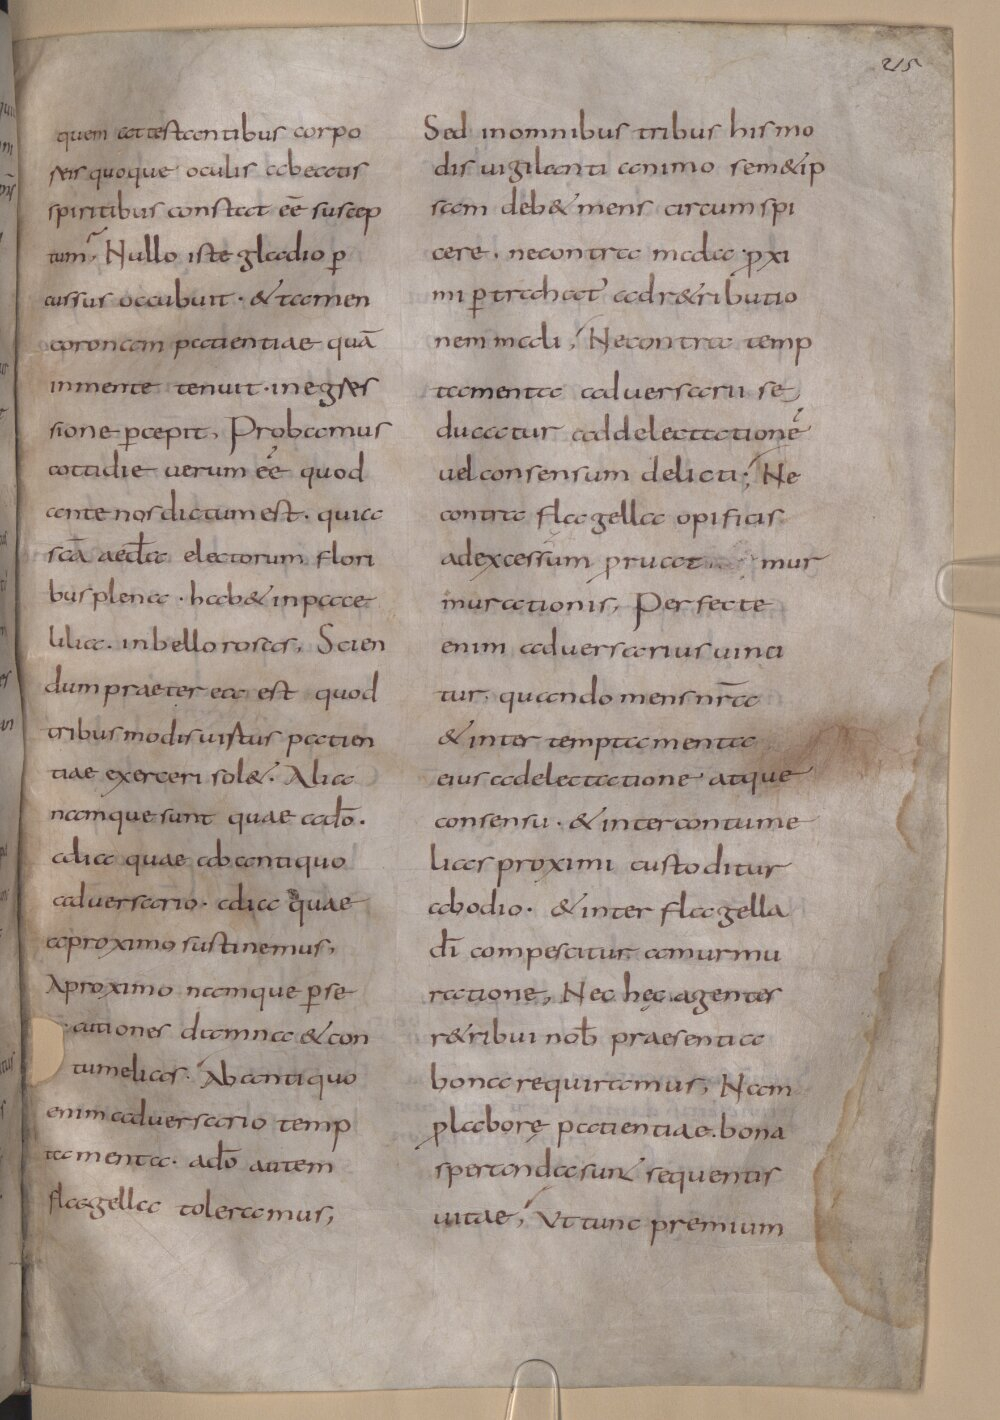 215
quem attestantibus corpo
reis quoque oculis abeatis
spiritibus constat eē suscep
tum; Nullo iste gladio ꝑ
cussus occubuit · & tamen
coronam patientiae quā
inmente tenuit · inegres
sione ꝑcepit, Probamus
cottidie uerum eē quod
ante nos dictum est · quia
scā aeccla electorum flori
bus plena · hab& inpace
lilia · inbello rosas, Scien
dum praeter ea est quod
tribus modis uirtus patien
tiae exerceri sol& · Alia
namque sunt quae ado ·
alia quae abantiquo
aduersario · alia quae
aproximo sustinemus,
Aproximo namque ꝑse
cutiones damna & con
tumelias · Abantiquo
enim aduersario temp
tamenta · ado autem
flagella toleramus,
Sed inomnibus tribus his mo
dis uigilanti animo sem&ip
sam deb& mens circumspi
cere · necontra mala ꝓxi
mi ꝑtrahat adr&ributio
nem mali; Necontra temp
tamenta aduersarii se
ducatur addelectationē
uel consensum delicti; Ne
contra flagella opificis
adexcessum pruat mur
murationis, Perfecte
enim aduersarius uinci
tur · quando mens nr̄a
& inter temptamenta
eius adelectatione atque
consensu · & inter contume
lias proximi custoditur
abodio · & inter flagella
dī compescitur amurmu
ratione, Nec hęc agentes
r&ribui nob praesentia
bona requiramus, Nam
ꝓlaborę patientiae · bona
speranda sunt sequentis
uitae; Ut tunc premium